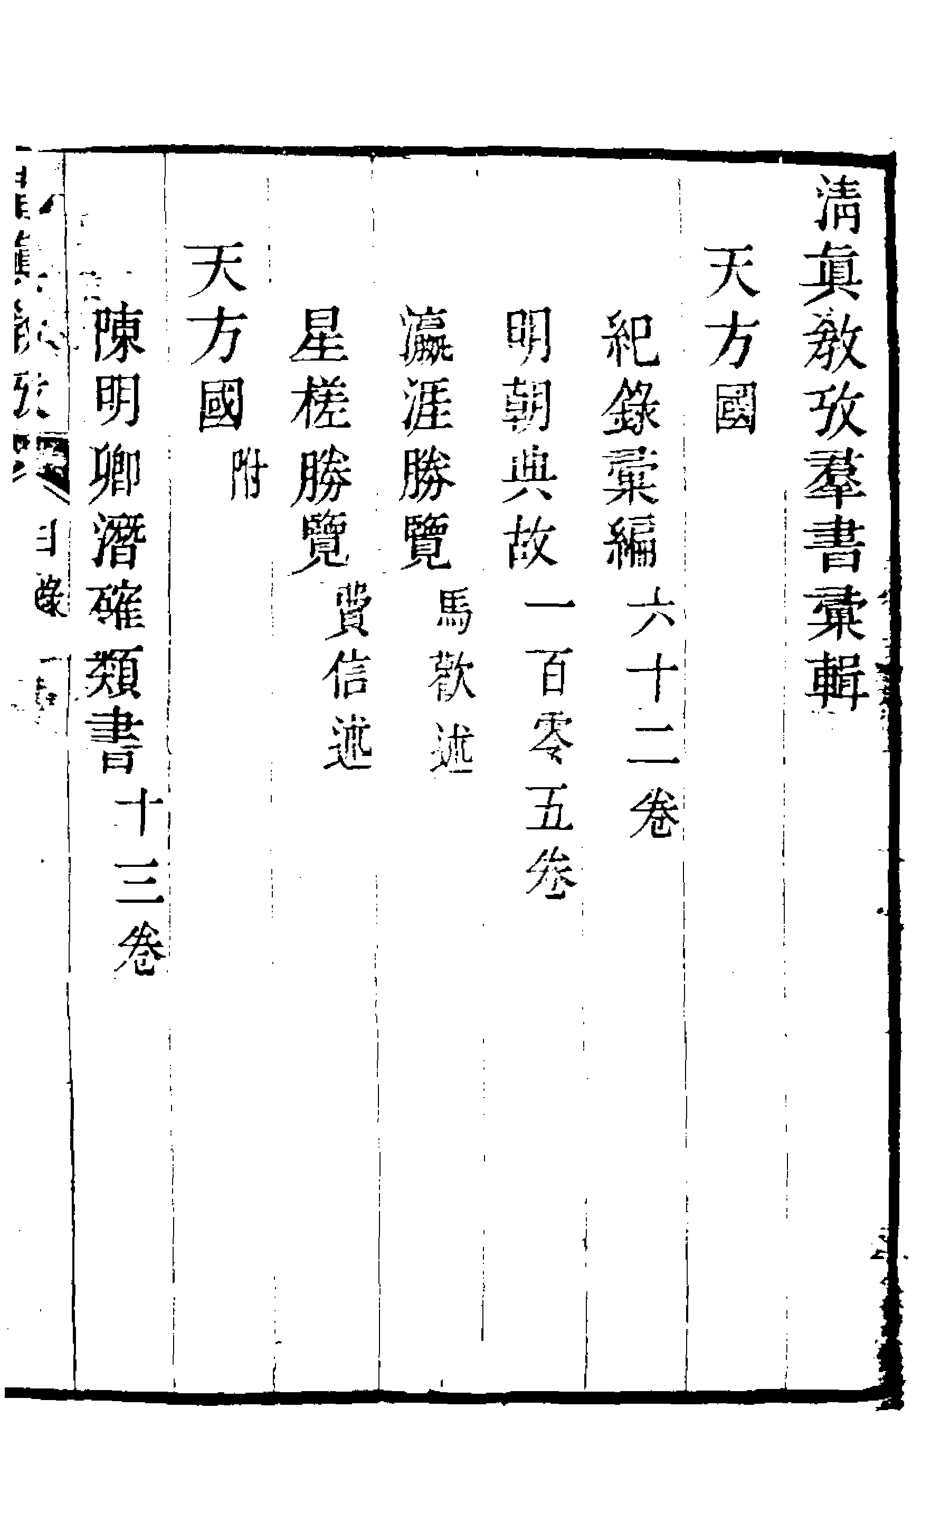 清眞教攷羣書彙輯
天方國
紀錄彙編 六十二卷
明朝典故 一百零五卷
瀛涯勝覽 馬歡述
星槎勝覽 費信述
天方國 附
陳明卿潛確類書 十三卷
目錄 一